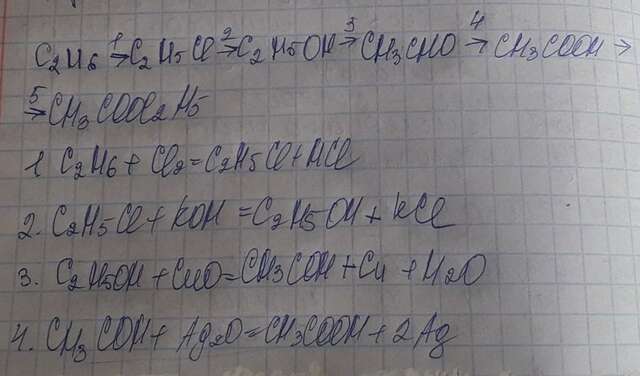 C2H6 1→ C2H5Cl 2→ C2H5OH 3→ CH3CHO 4→ CH3COOH →
5→ CH3COOC2H5
1 C2H6 + Cl2 = C2H5Cl + HCl
2. C2H5Cl + KOH = C2H5OH + KCl
3. C2H5OH + CuO = CH3COH + Cu + H2O
4. CH3COH + Ag2O = CH3COOH + 2Ag